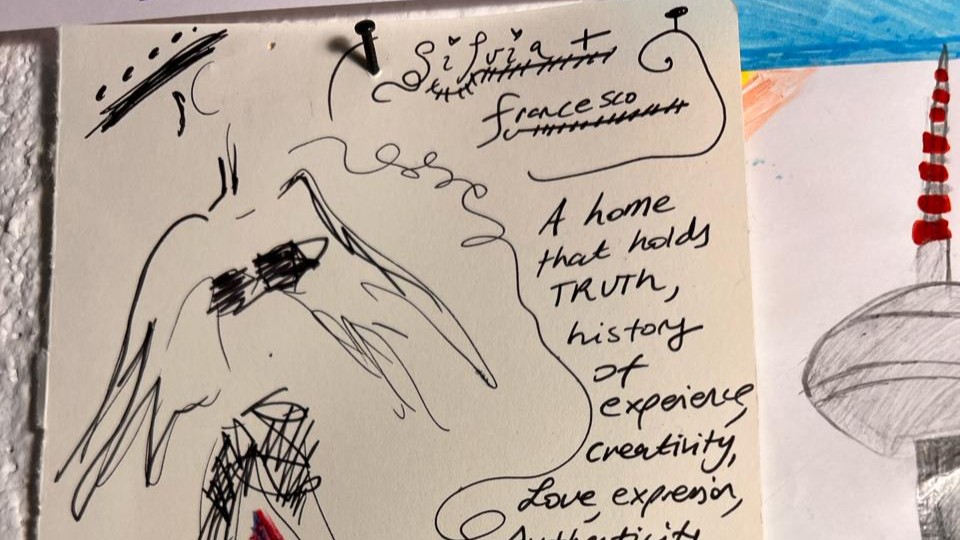 Silvia +
francesco
A home
that holds
TRUTH,
history
of
experience,
creativity,
Love, expression,
Authenticity